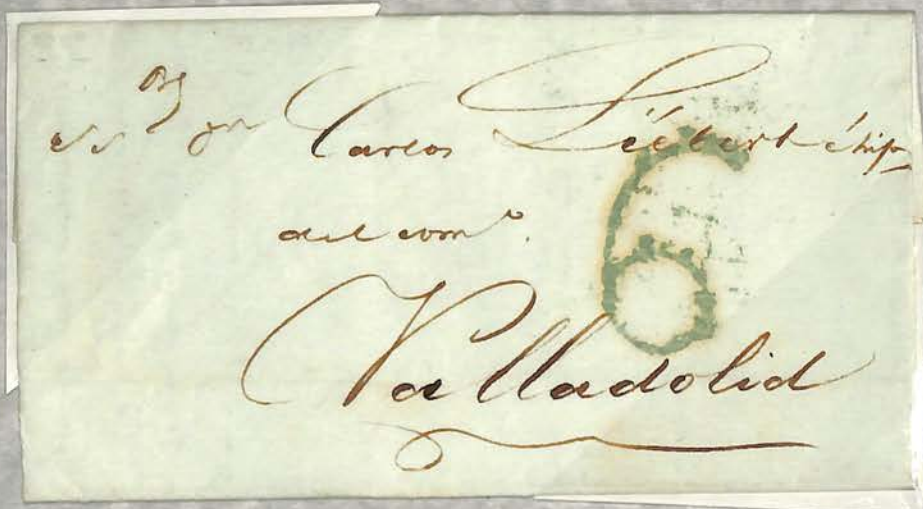 Carlos Liébert é hijo
del com.º
Valladolid
6